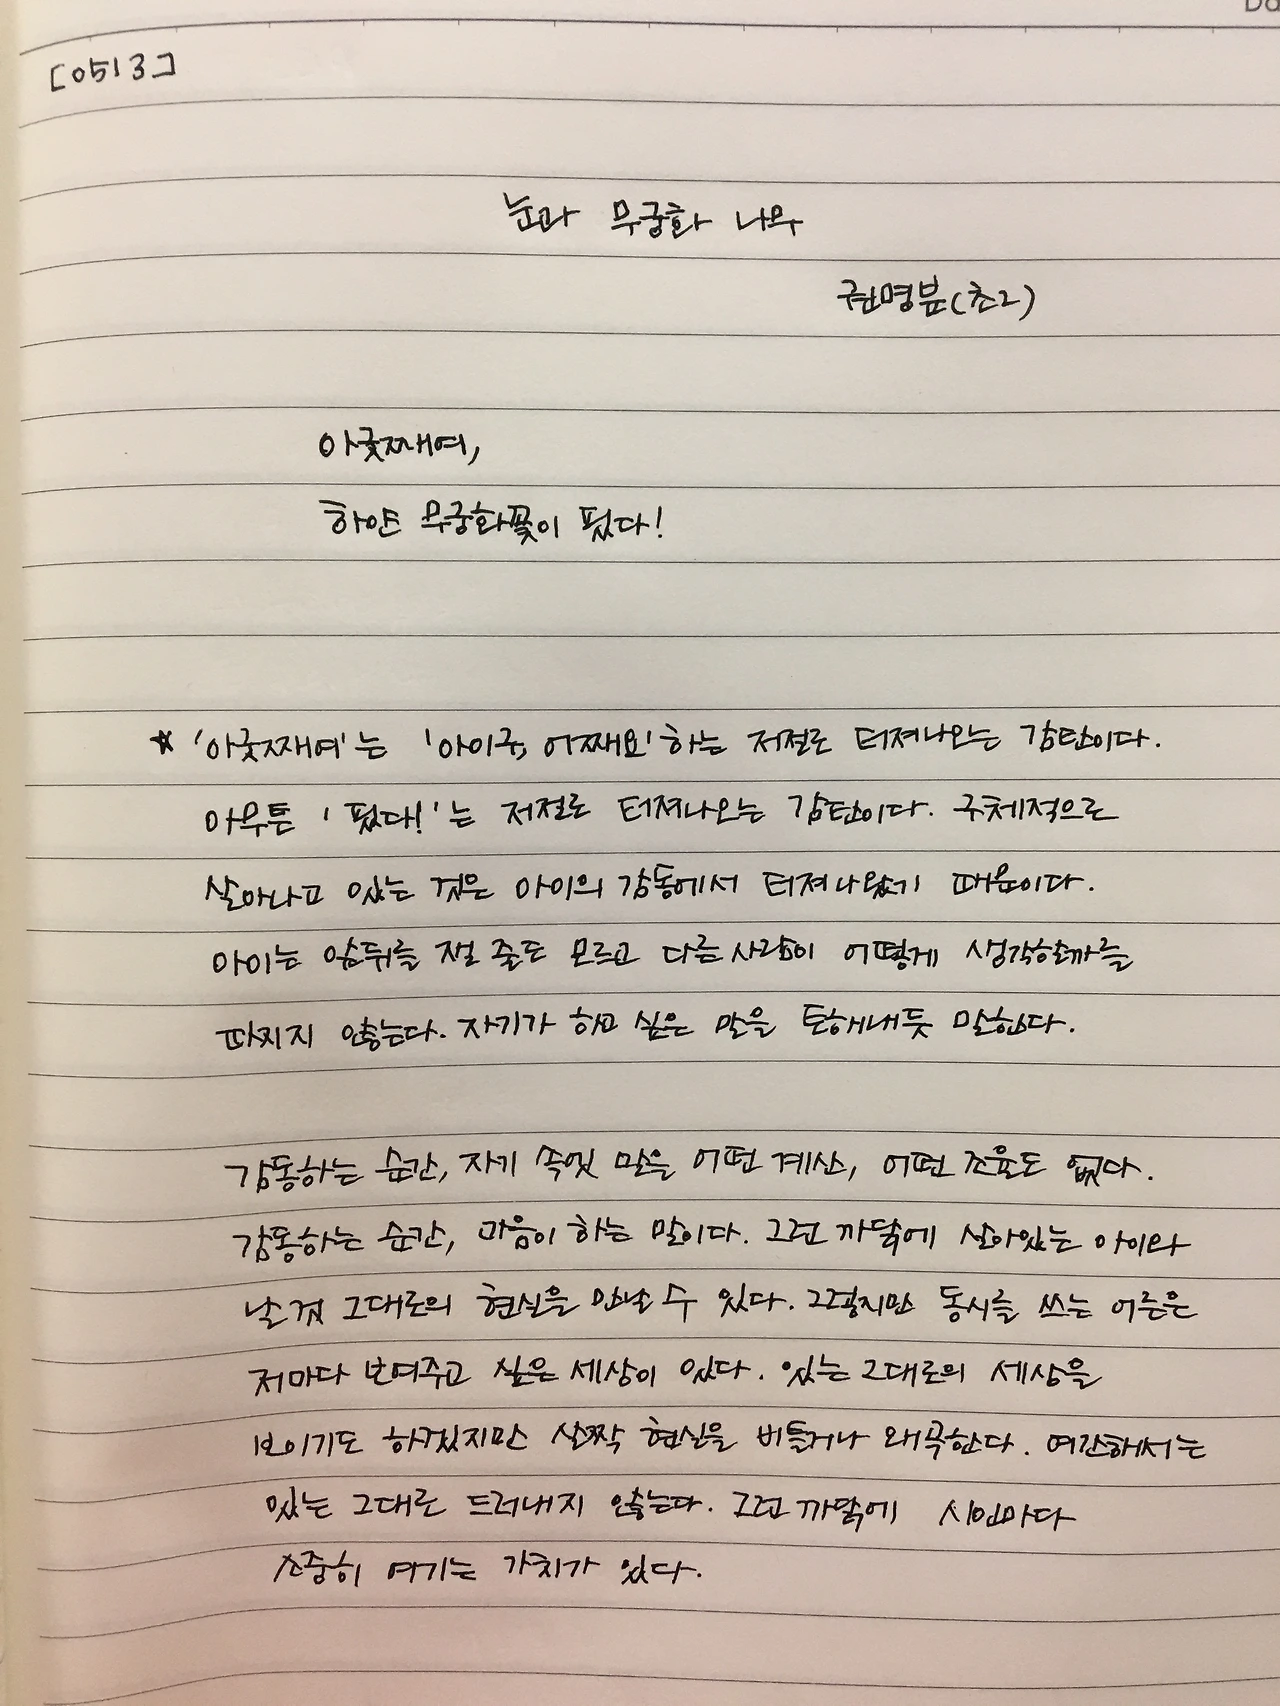 [0513]
눈과 무궁화 나무
권명분(초2)
아궂째여,
하얀 무궁화꽃이 핐다!
★ '아궂째여'는 '아이구, 어째요' 하는 저절로 터져나오는 감탄이다.
아무튼 '핐다!'는 저절로 터져나오는 감탄이다. 구체적으로
살아나고 있는 것은 아이의 감동에서 터져나왔기 때문이다.
아이는 앞뒤를 잴 줄도 모르고 다른 사람이 어떻게 생각할까를
따지지 않는다. 자기가 하고 싶은 말을 토해내듯 말한다.
감동하는 순간, 자기 속엣 말은 어떤 계산, 어떤 조율도 없다.
감동하는 순간, 마음이 하는 말이다. 그런 까닭에 살아있는 아이와
날것 그대로의 현실을 만날 수 있다. 그렇지만 동시를 쓰는 어른은
저마다 보여주고 싶은 세상이 있다. 있는 그대로의 세상을
보이기도 하겠지만 살짝 현실을 비틀거나 왜곡한다. 여간해서는
있는 그대로 드러내지 않는다. 그런 까닭에 시인마다
소중히 여기는 가치가 있다.